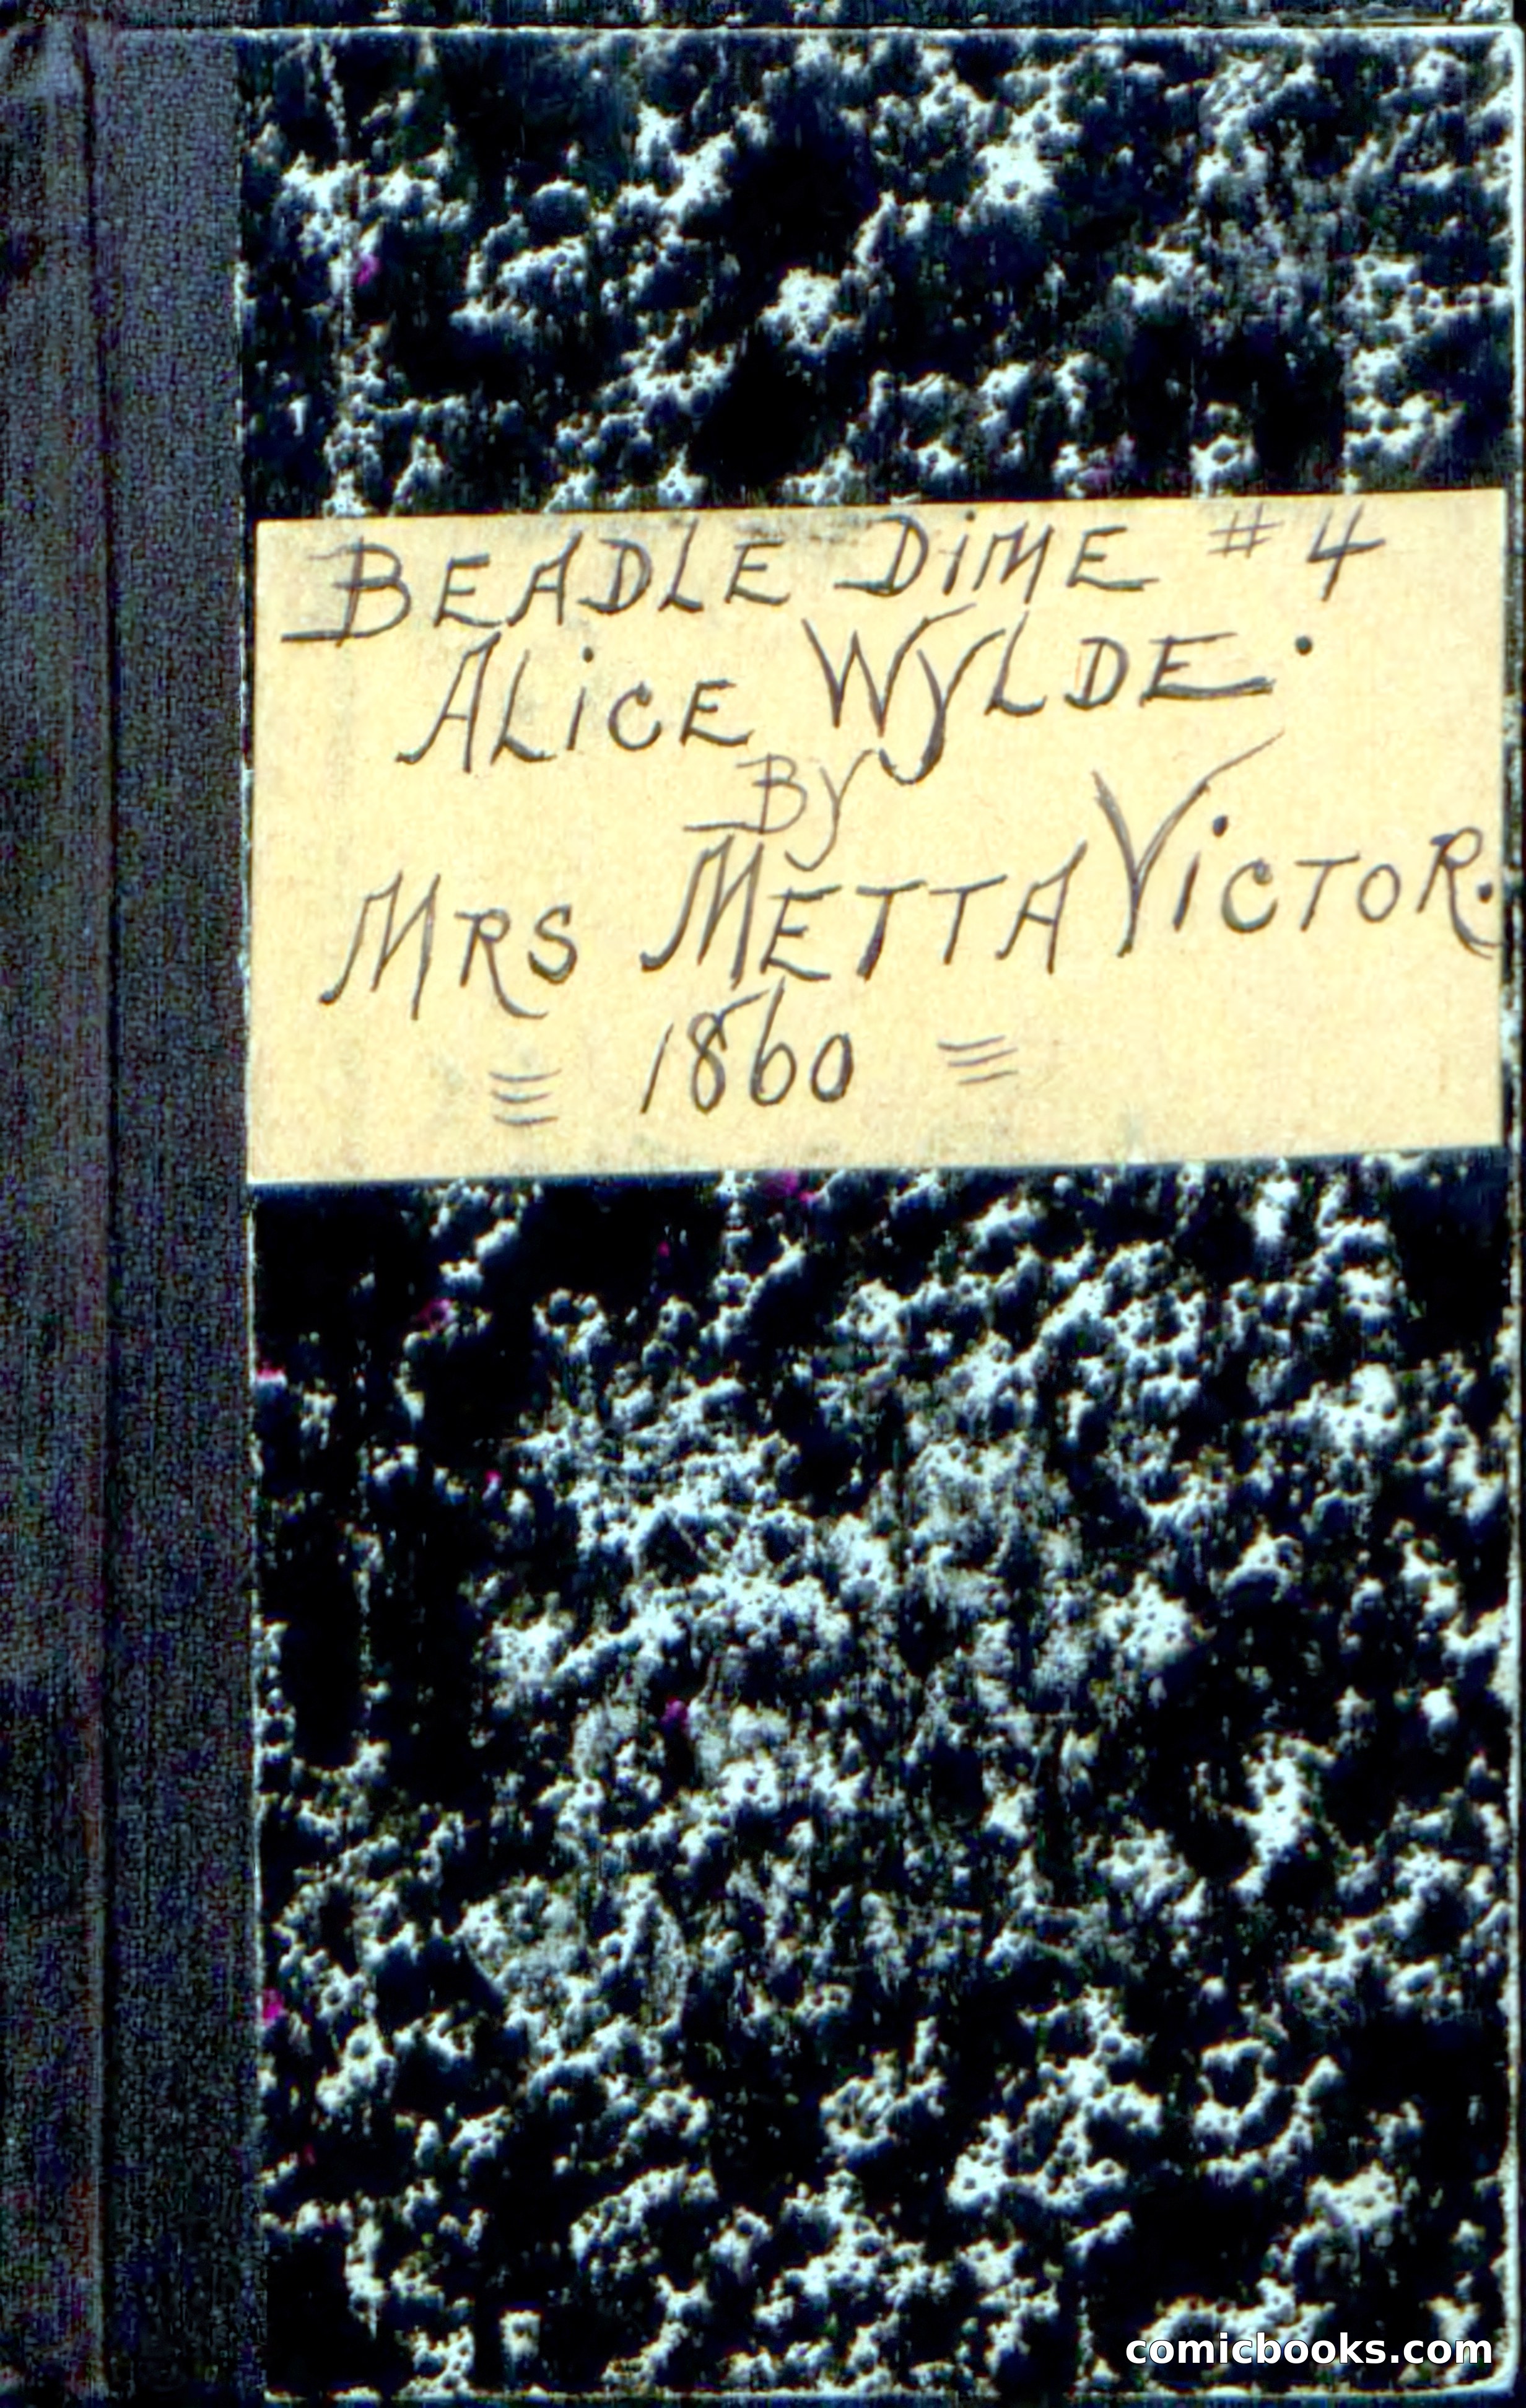 BEADLE DiME #4
ALiCE WYLDE.
By
MRS METTA VICTOR.
1860
comicbooks.com